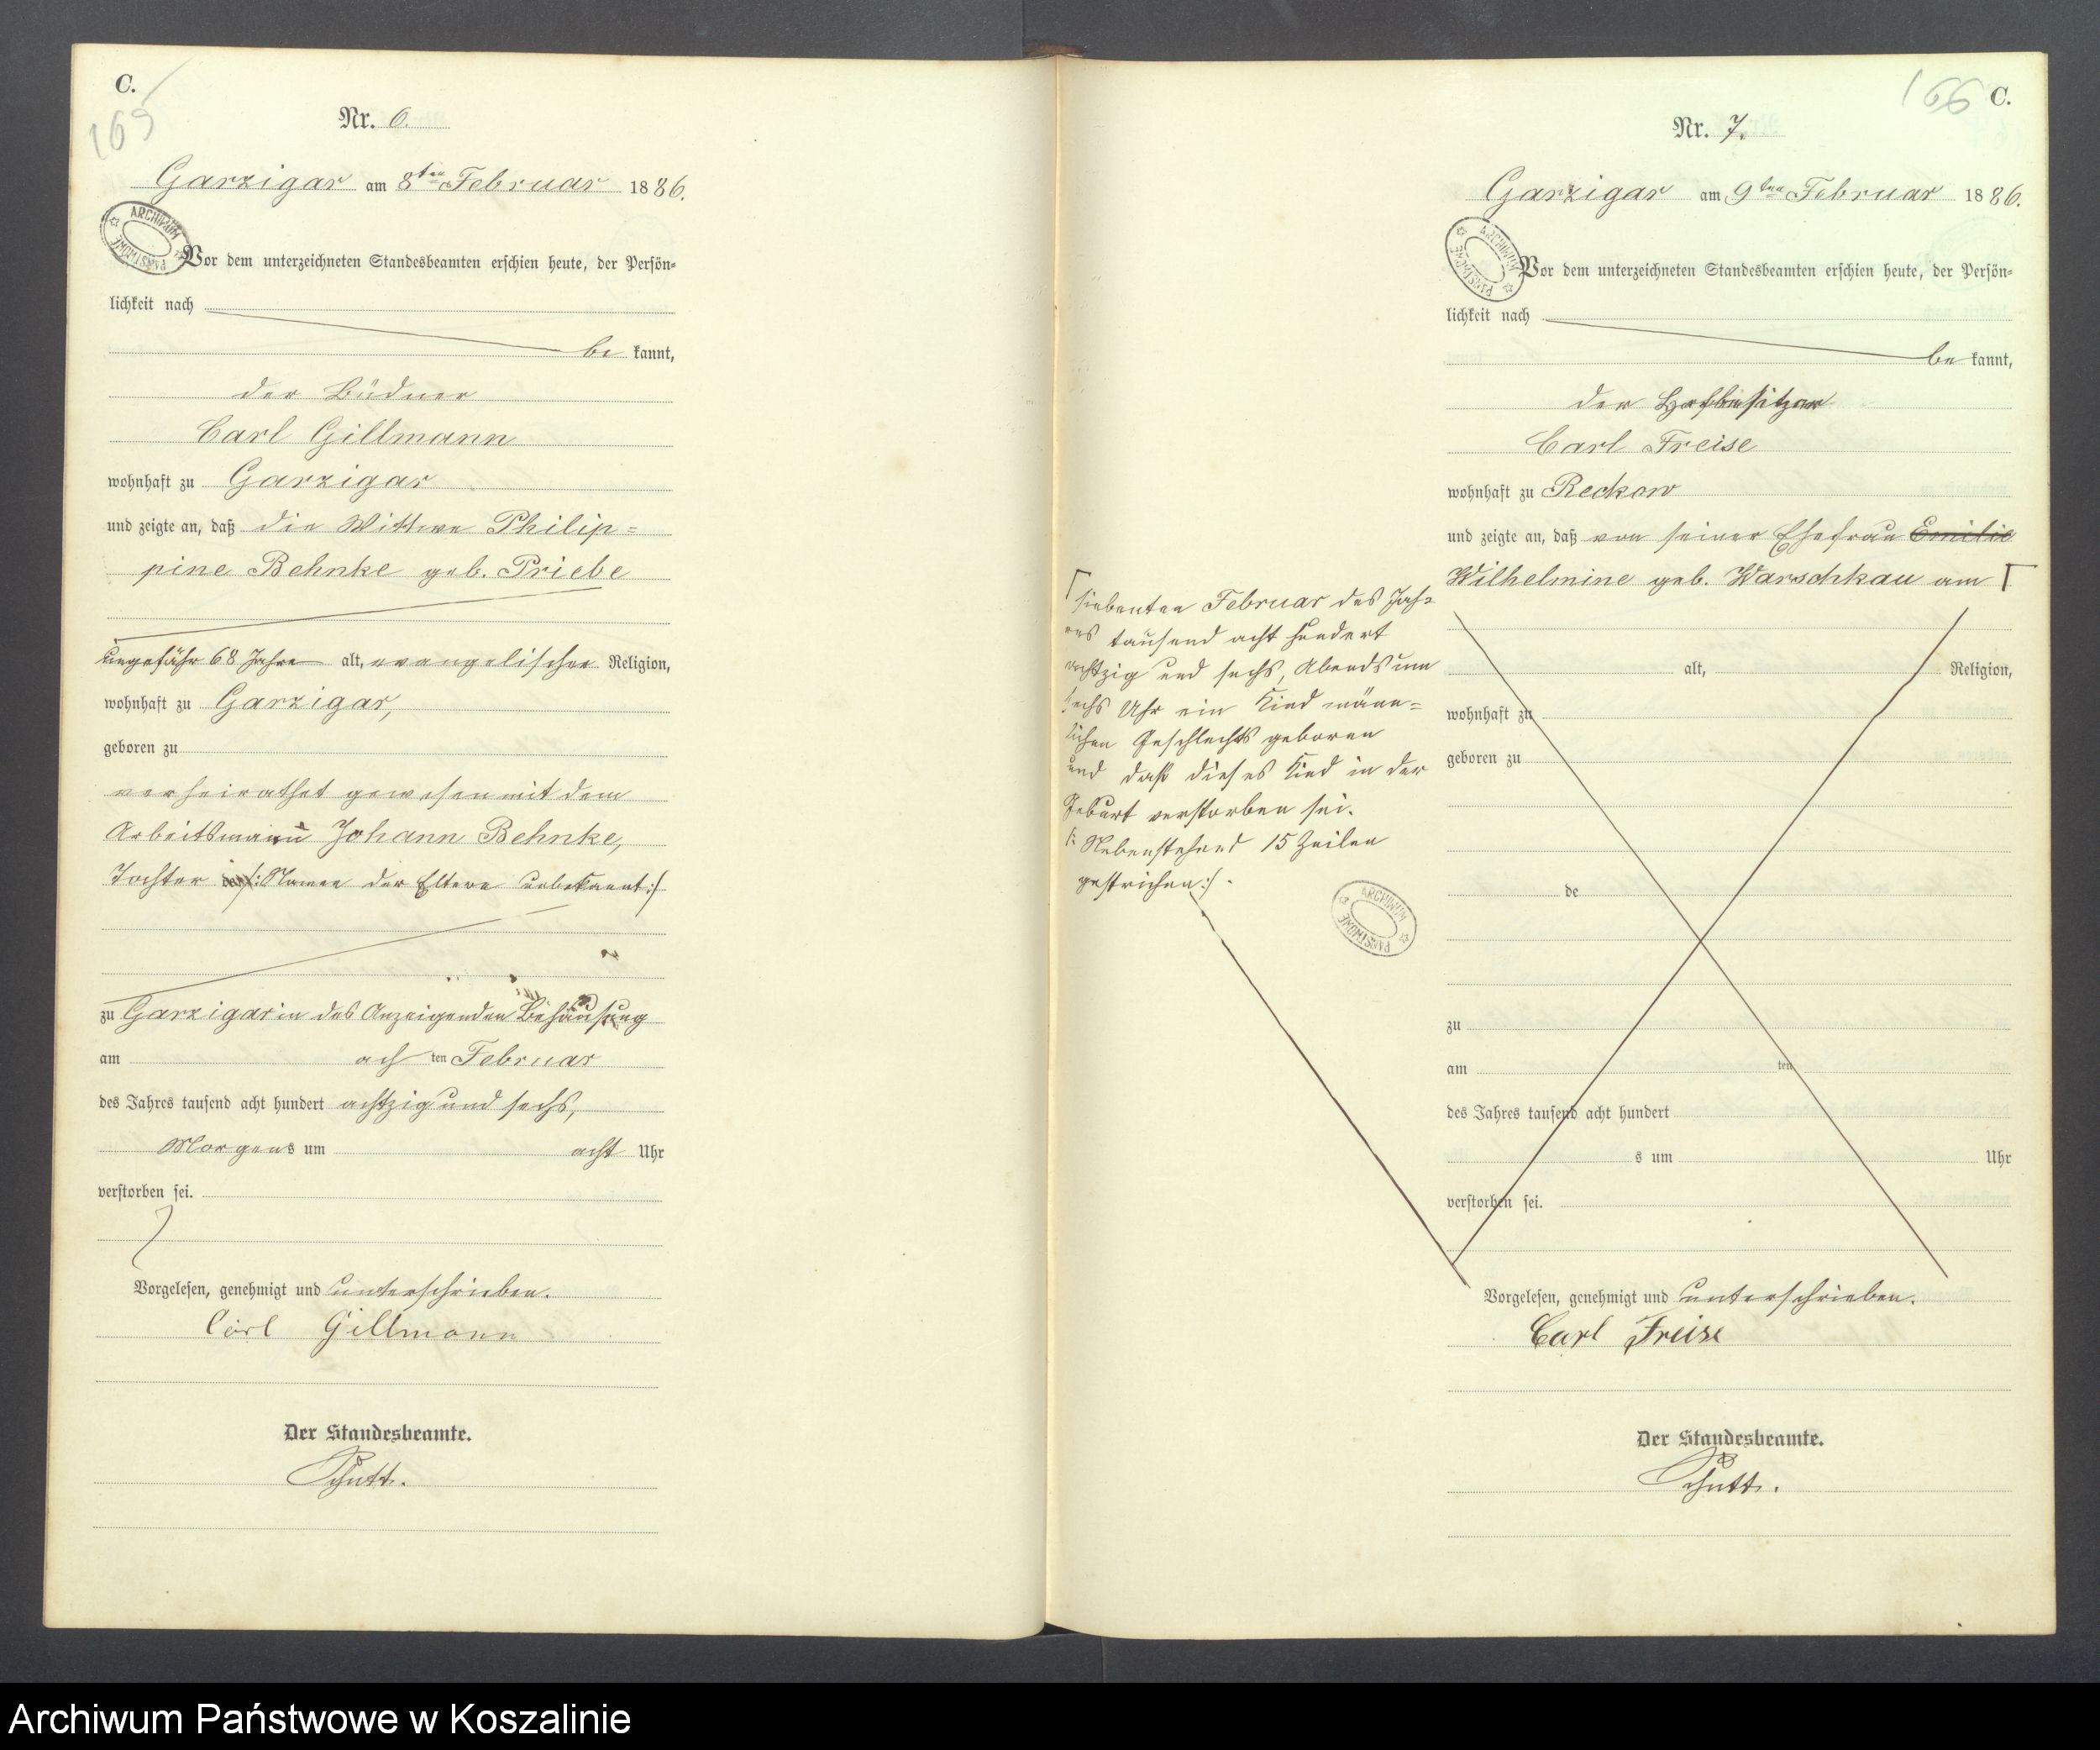 C.
165
Nr. 6.
Garzigar am 8ten Februar 1886.
ARCHIWUM PAŃSTWOWE
Vor dem unterzeichneten Standesbeamten erschien heute, der Persön=
lichkeit nach
be kannt,
der Büdner
Carl Gillmann
wohnhaft zu Garzigar
und zeigte an, daß die Wittwe Philip=
pine Behnke geb. Priebe
ungefähr 68 Jahre alt, evangelischer Religion,
wohnhaft zu Garzigar,
geboren zu
verheirathet gewesen mit dem
Arbeitsmann Johann Behnke,
Tochter /: Namen der Eltern unbekannt :/
zu Garzigar in des Anzeigenden Behausung
am ach ten Februar
des Jahres tausend acht hundert achtzig und sechs,
Morgens um acht Uhr
verstorben sei.
Vorgelesen, genehmigt und unterschrieben.
Carl Gillmann
Der Standesbeamte.
Schutt.
166 C.
Nr. 7.
Garzigar am 9ten Februar 1886.
ARCHIWUM PAŃSTWOWE
Vor dem unterzeichneten Standesbeamten erschien heute, der Persön=
lichkeit nach
be kannt,
der Hofbesitzer
Carl Freise
wohnhaft zu Reckow
und zeigte an, daß von seiner Ehefrau Emilie
Wilhelmine geb. Warschkau am
siebenten Februar des Jah=
res tausend acht hundert
achtzig und sechs, Abends um
sechs Uhr ein Kind männ=
lichen Geschlechts geboren
und daß dieses Kind in der
Geburt verstorben sei.
/: Nebenstehend 15 Zeilen
gestrichen :/.
ARCHIWUM PAŃSTWOWE
alt, Religion,
wohnhaft zu
geboren zu
de
zu
am ten
des Jahres tausend acht hundert
s um Uhr
verstorben sei.
Vorgelesen, genehmigt und unterschrieben.
Carl Freise
Der Standesbeamte.
Schutt.
Archiwum Państwowe w Koszalinie